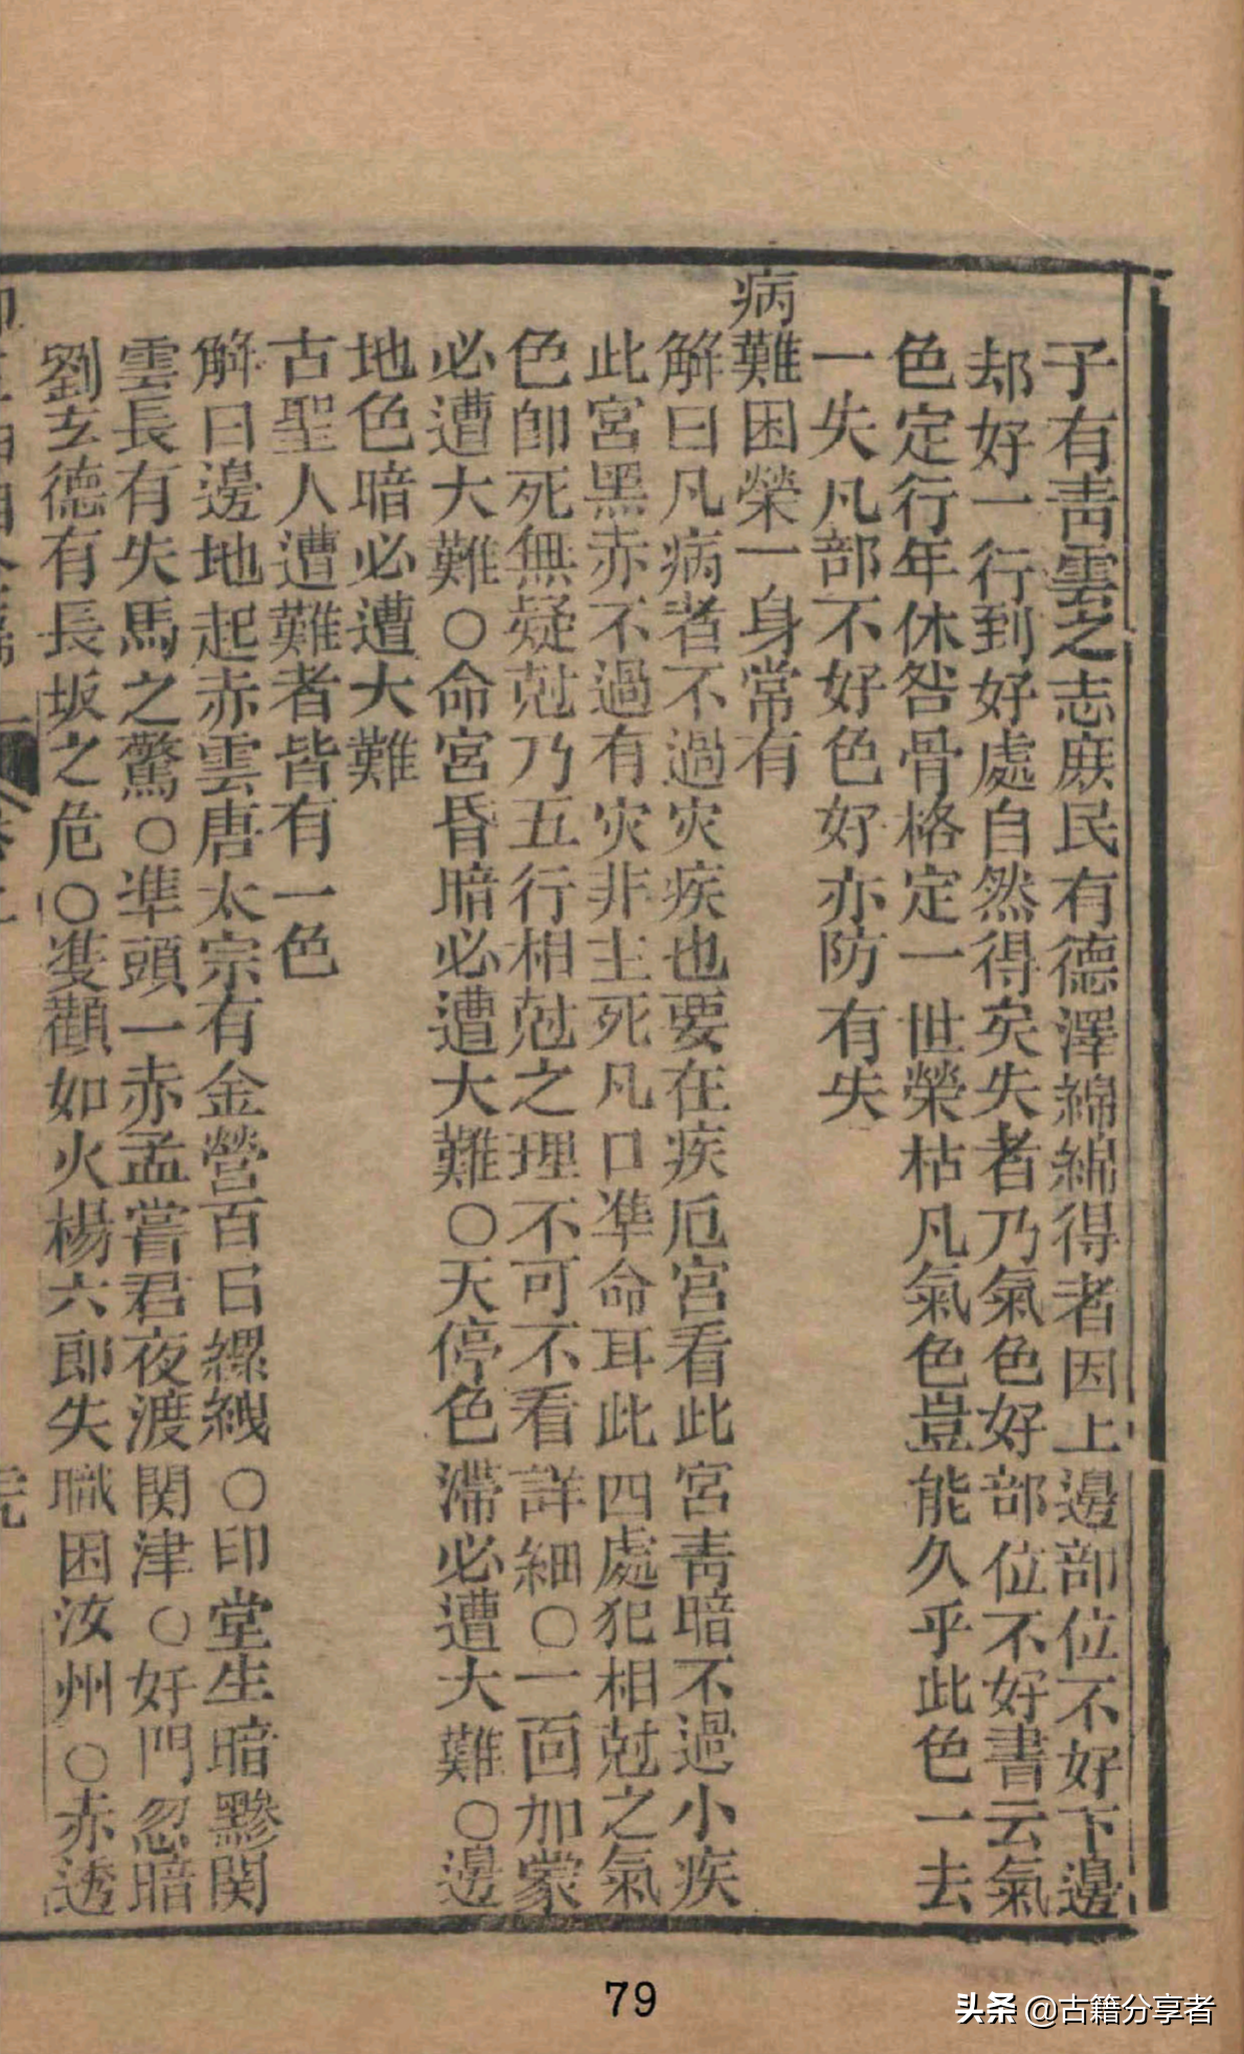 子有靑雲之志庶民有德澤綿綿得者因上邊部位不好下邊
却好一行到好處自然得矣失者乃氣色好部位不好書云氣
色定行年休咎骨格定一世榮枯凡氣色豈能久乎此色一去
一失凡部不好色好亦防有失
病難困榮一身常有
解曰凡病者不過灾疾也要在疾厄宮看此宮靑暗不過小疾
此宮黑赤不過有灾非主死凡口凖命耳此四處犯相尅之氣
色卽死無疑尅乃五行相尅之理不可不看詳細○一面加蒙
必遭大難○命宮昏暗必遭大難○天停色滯必遭大難○邊
地色暗必遭大難
古聖人遭難者皆有一色
解曰邊地起赤雲唐太宗有金營百日縲絏○印堂生暗黲関
雲長有失馬之驚○凖頭一赤孟嘗君夜渡関津○奸門忽暗
劉玄德有長坂之危○隻顴如火楊六郎失職困汝州○赤透
79
头条 @古籍分享者